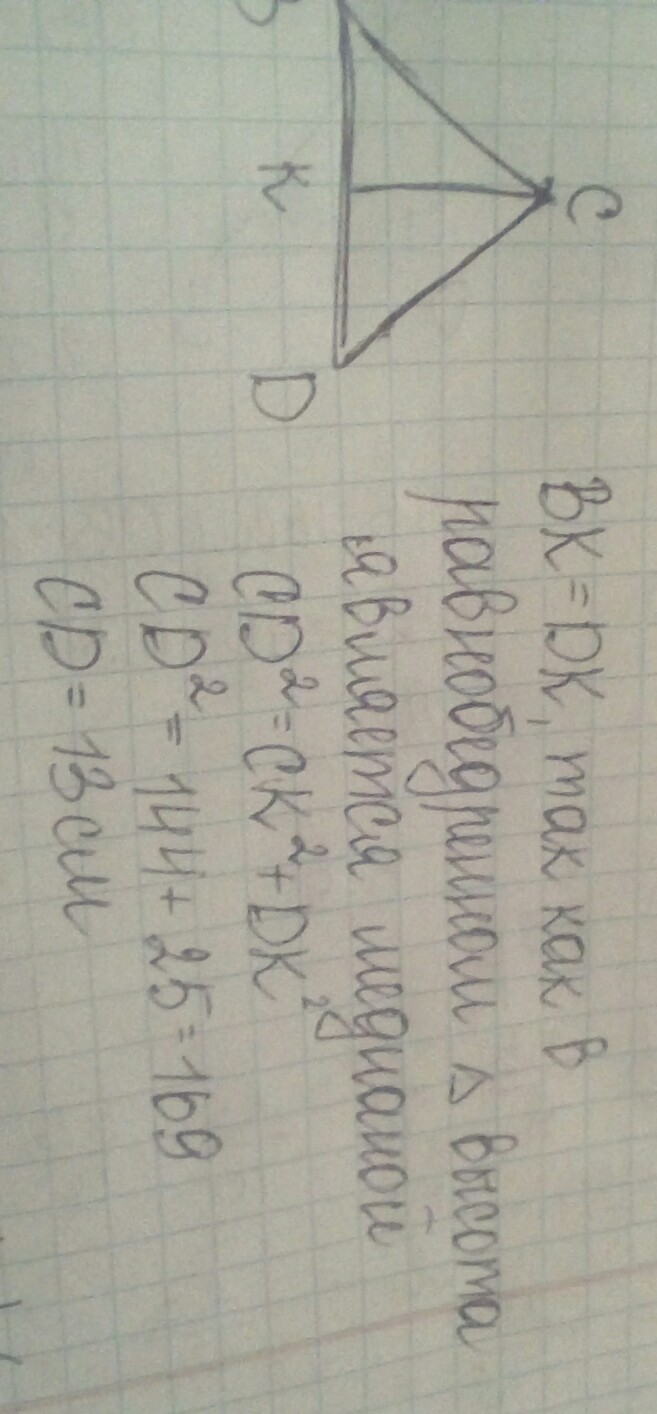 C
B K D
BK = DK, так как в
равнобедренном △ высота
является медианой
CD² = CK² + DK²
CD² = 144 + 25 = 169
CD = 13 см